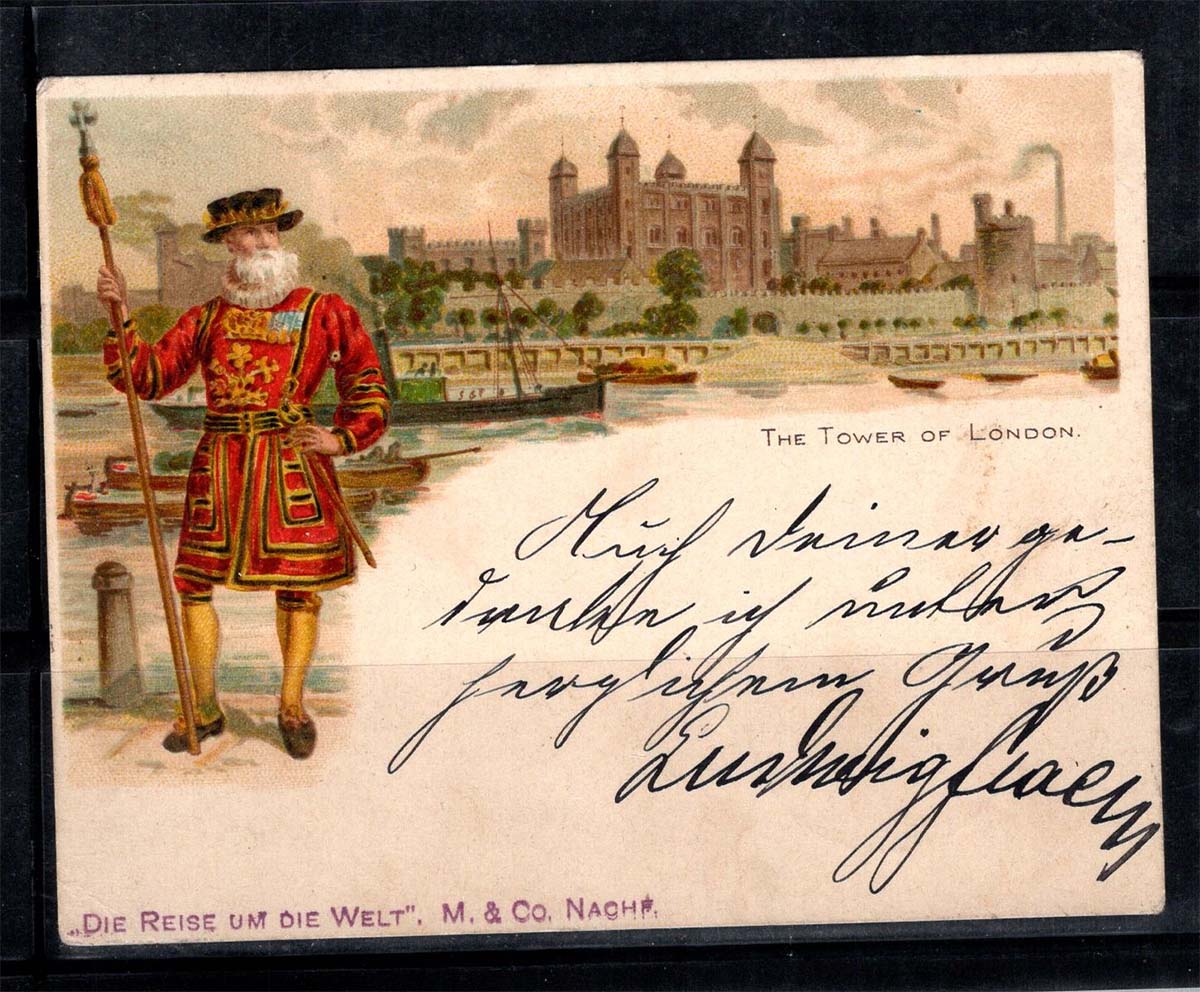 THE TOWER OF LONDON.
Auch deiner ge-
denke ich unter
herzlichem Gruß
Ludwig
„DIE REISE UM DIE WELT". M. & CO. NACHF.